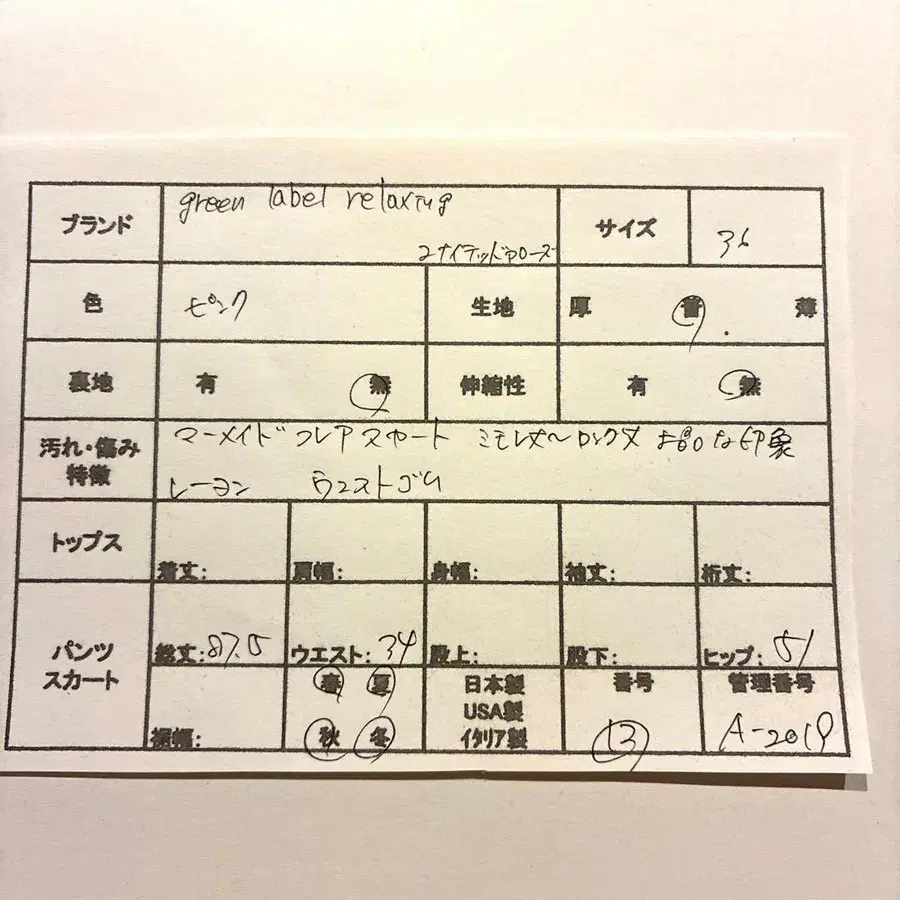 ブランド green label relaxing サイズ 36
ユナイテッドアローズ
色 ピンク 生地 厚 普 薄
裏地 有 無 伸縮性 有 無
汚れ・傷み マーメイドフレアスカート ミモレ丈〜ロング丈 お品な印象
特徴 レーヨン ウエストゴム
トップス 着丈: 肩幅: 身幅: 袖丈: 裄丈:
パンツ 総丈:87.5 ウエスト:34 股上: 股下: ヒップ:51
スカート 春 夏 日本製 番号 管理番号
USA製
裾幅: 秋 冬 イタリア製 13 A-2019